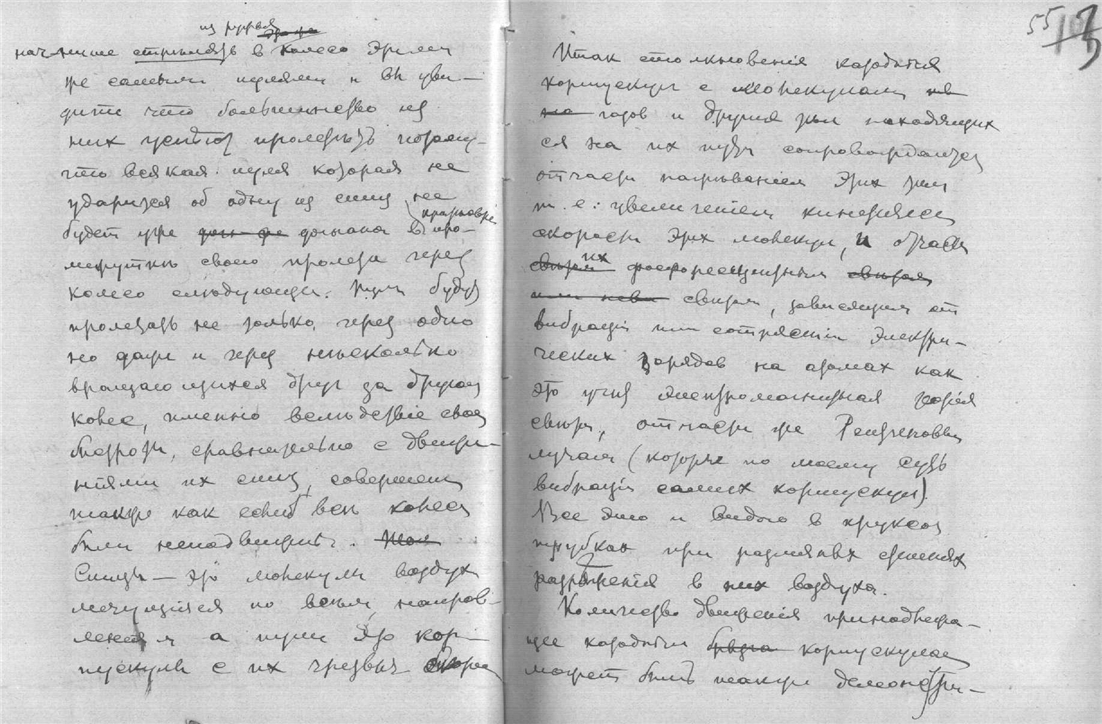 из ружья
начните стрѣлять в колесо этими
же самыми пулями и вы уви-
дите что большинство из
них пролетят потому-
что всякая пуля которая не
ударится об одну из спиц ее
будет уже догнана в про-
кратковр
межутки своего пролета через
колесо слѣдующей. Пули будут
пролетать не только через одно
но даже и через нѣсколько
вращающихся друг за другом
колес, именно вслѣдствіе своей
быстроты, сравнительно с движе-
ніями их спиц, совершенно
также как если б всѣ колеса
были неподвижны.
Спицы — это молекулы воздуха
мечущіяся по всѣм направ-
леніям а пули это кор-
пускулы с их чрезвыч. скорос
55
Итак столкновенія катодных
корпускул с молекулами
газов и других тѣл находящих
ся на их пути сопровождается
отчасти нагрѣваніем этих тѣл
т. е: увеличеніем кинетическ
скорости этих молекул, и отчасти
их фосфоресцирным
свѣтом, зависящим от
вибрацій или сотрясеній электри-
ческих зарядов на атомах как
это учит электромагнитная теорія
свѣта, отчасти же Рентгеновым
лучам (которые по моему суть
вибраціи самих корпускул).
Все это и видно в круксов
трубках при различных степенях
разрѣженія в них воздуха.
Количество движенія принадлежа-
щее катодным корпускулам
может быть также демонстри-